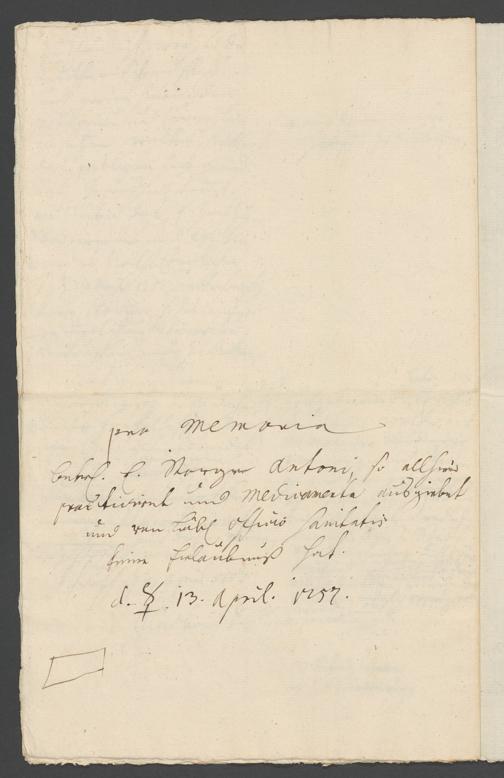 pro Memoria
betref. H. Antoni, so allhier
practicirt und Medicamenta ausgiebet
und von löbl. officio Sanitatis
keine Erlaubnuß hat.
d. 13. April. 1757.